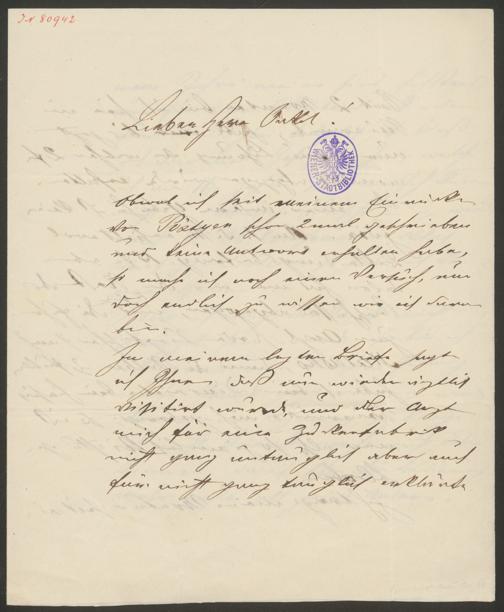 I N 80942
Lieber Herr Onkel!
WIENER STADTBIBLIOTHEK
Obwol ich seit meinem Einrücken
von schon 2mal geschrieben
und keine Antwort erhalten habe,
so mache ich noch einen Versuch, um
doch endlich zu wissen wie ich daran
bin.
In meinem letzten Briefe sagt
ich Ihnen daß wir wieder ärztlich
visitirt wurde, und der Arzt
mich für eine Zuckerfabrik
nicht ganz untauglich aber auch
für nicht ganz tauglich erklärte